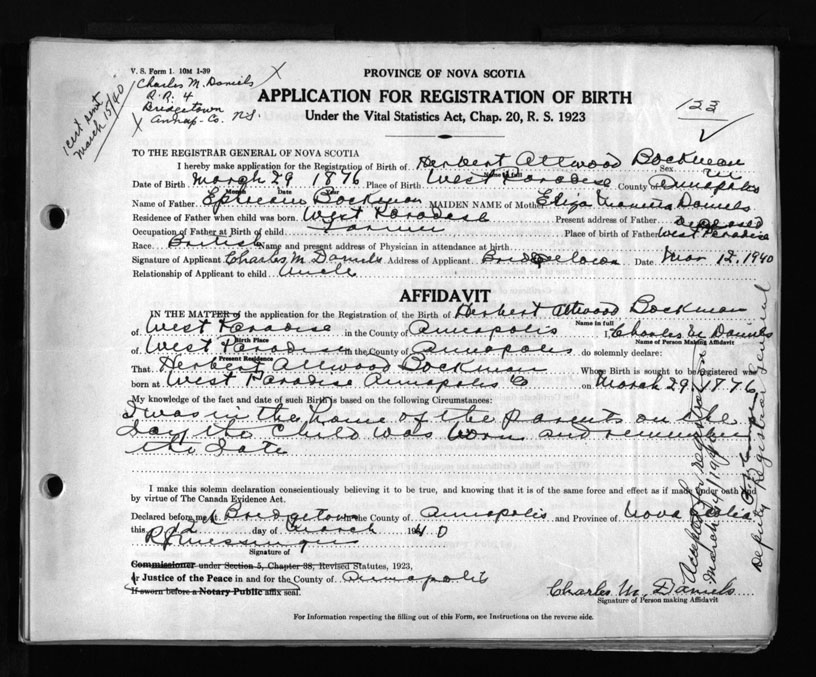 V. S. Form 1. 10M 1-39
Charles M. Daniels
R.R. 4
Bridgetown
Annap- Co. N.S.
1 cert sent
March 15/40
PROVINCE OF NOVA SCOTIA
APPLICATION FOR REGISTRATION OF BIRTH
Under the Vital Statistics Act, Chap. 20, R. S. 1923
123
TO THE REGISTRAR GENERAL OF NOVA SCOTIA
I hereby make application for the Registration of Birth of Herbert Attwood Bockman
Name in full Sex M
Date of Birth March 29 1876 Place of Birth West Paradise County of Annapolis
Month Day Year
Name of Father Ephraim Bockman MAIDEN NAME of Mother Eliza Daniels
Residence of Father when child was born West Paradise Present address of Father Deceased
Occupation of Father at Birth of child Farmer Place of birth of Father West Paradise
Race British Name and present address of Physician in attendance at birth
Signature of Applicant Charles M. Daniels Address of Applicant Bridgetown Date Mar 12, 1940
Relationship of Applicant to child Uncle
AFFIDAVIT
IN THE MATTER of the application for the Registration of the Birth of Herbert Attwood Bockman
Name in full
of West Paradise in the County of Annapolis I, Charles M Daniels
Birth Place Name of Person Making Affidavit
of West Paradise in the County of Annapolis do solemnly declare:
Present Residence
That Herbert Attwood Bockman Whose Birth is sought to be registered was
born at West Paradise Annapolis Co on March 29 1876
My knowledge of the fact and date of such Birth is based on the following Circumstances:
I was in the home of the parents on the
day the child was born and remember
the date
I make this solemn declaration conscientiously believing it to be true, and knowing that it is of the same force and effect as if made under oath and
by virtue of The Canada Evidence Act.
Declared before me at Bridgetown in the County of Annapolis and Province of Nova Scotia
this 12th day of March 1940
Signature of
Commissioner under Section 5, Chapter 38, Revised Statutes, 1923,
or Justice of the Peace in and for the County of Annapolis
If sworn before a Notary Public affix seal.
Charles M. Daniels
Signature of Person making Affidavit
For Information respecting the filling out of this Form, see Instructions on the reverse side.
Accepted for registration
March 1940
Deputy Registrar General